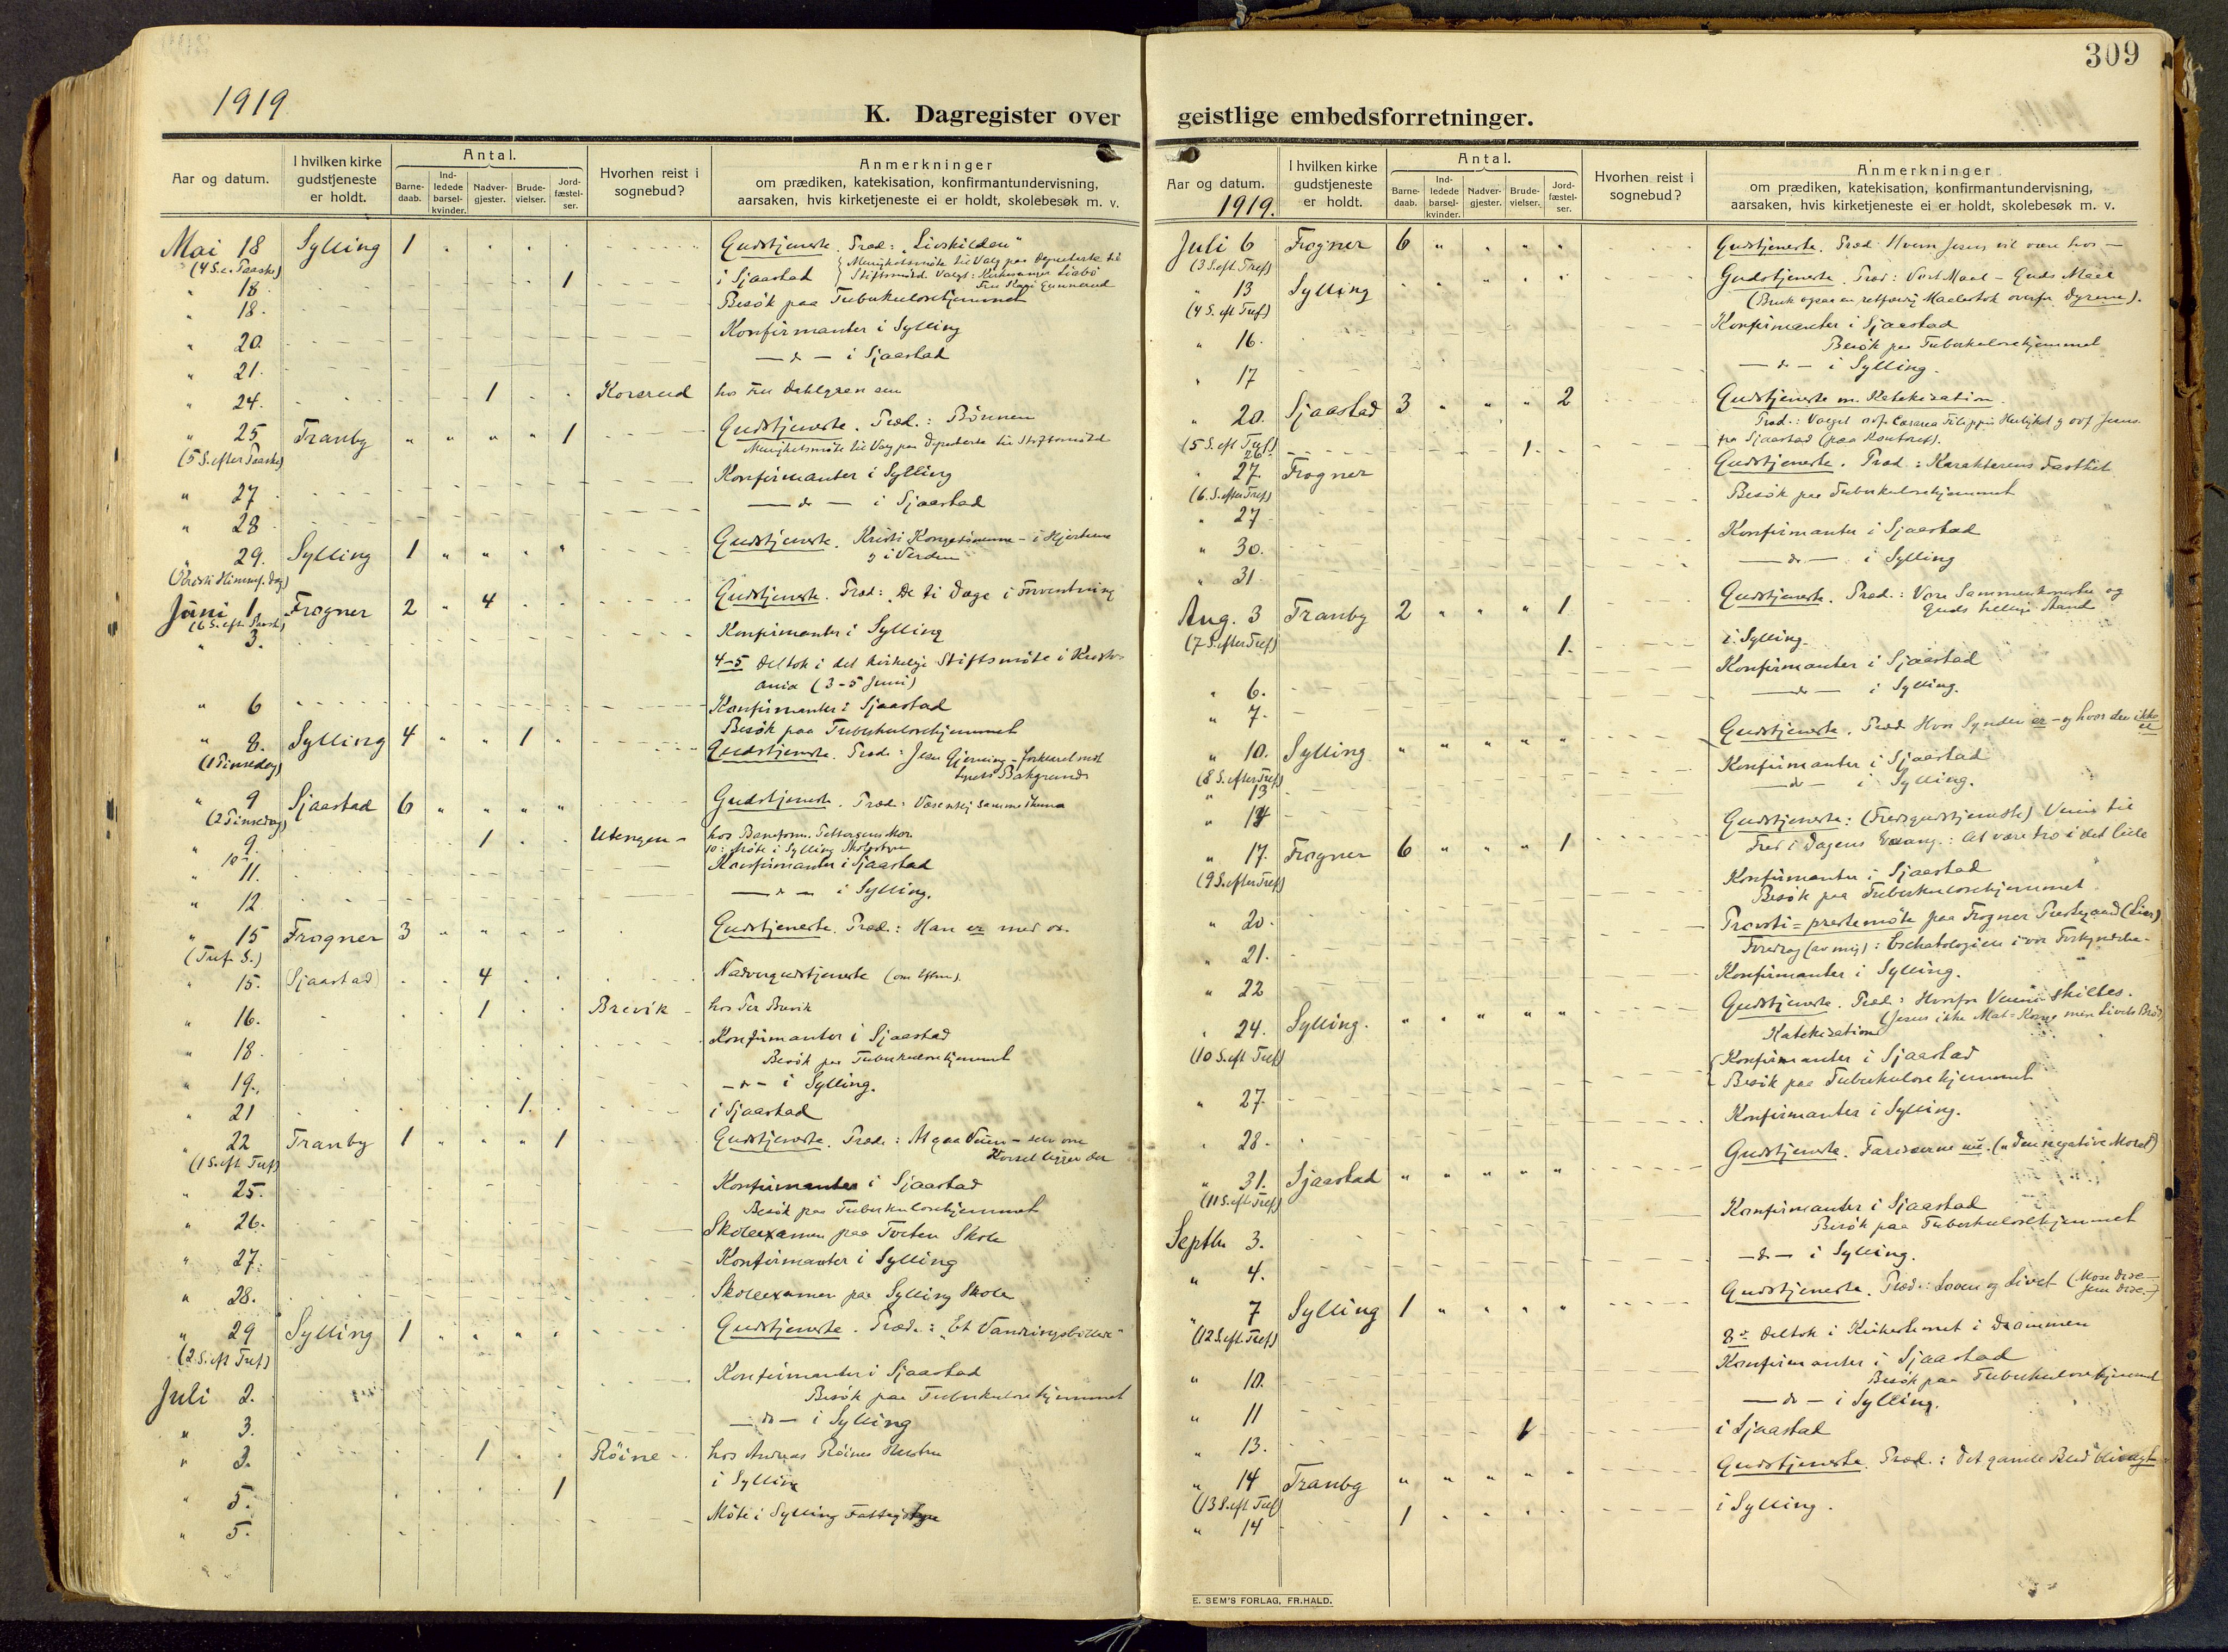 309
1919
K. Dagregister over
Aar og datum.
I hvilken kirke gudstjeneste er holdt.
Antal.
Barne-daab.
Ind-ledede barsel-kvinder.
Nadver-gjester.
Brude-vielser.
Jord-fæstel-ser.
Hvorhen reist i sognebud?
Anmerkninger
om prædiken, katekisation, konfirmantundervisning,
aarsaken, hvis kirketjeneste ei er holdt, skolebesøk m. v.
Mai 18 Sylling 1 Gudstjeneste. Præd: "Livskilden"
(4 S. e. Paaske) Menighetsmöte til Valg paa Deputerte til
" 18 1 i Sjaastad Stiftsmöte. Valgt: Kirkesanger Liabö
" 18. Besök paa Tuberkulosehjemmet
" 20. Konfirmanter i Sylling
" 21. — do — i Sjaastad
" 24. 1 Korsrud hos Fru Dahlgren sen
" 25 Tranby " " " " 1 Gudstjeneste. Præd.: Bönnen
(5 S. efter Paaske) Menighetsmöte til Valg paa Deputerte til Stiftsmöte
" 27 Konfirmanter i Sylling
" 28 — do — i Sjaastad
" 29. Sylling 1 " " " " Gudstjeneste. Kristi Kongedömme - i Hjerterne
(Kristi Himmf. dag) og i Verden
Juni 1. Frogner 2 " 4 Gudstjeneste. Præd: De ti Dage i Forventning
(6 S. eft. Paaske)
" 3. Konfirmanter i Sylling
4-5 Deltok i det kirkelige Stiftsmöte i Kristi-
ania (3-5 Juni)
" 6 Konfirmanter i Sjaastad
Besök paa Tuberkulosehjemmet
" 8. Sylling 4 " " 1 Gudstjeneste. Præd: Jesu Gjerning - forklaret mot
(1 Pinsedag) Bakgrund
" 9 Sjaastad 6 " " " " Gudstjeneste. Præd:
(2 Pinsedag)
" 9. 1 Utengen - hos Baneform. Pettersens Mor
10 10: Möte i Sylling Skolestyre
" 11. Konfirmanter i Sjaastad
" 12 — do — i Sylling.
" 15 Frogner 3 " " " " Gudstjeneste. Præd.: Han er med os.
(Tref. S.)
" 15. (Sjaastad) 4 Nadvergudstjeneste (om Eftm).
" 16. 1 Brevik hos Per Brevik
" 18. Konfirmanter i Sjaastad
Besök paa Tuberkulosehjemmet
" 19. — do — i Sylling.
" 21 1. i Sjaastad
" 22 Tranby 1 " " " 1 Gudstjeneste. Præd.: At gaa Veien - selv om
(1 S. eft. Tref) Korset ligger der
" 25. Konfirmanter i Sjaastad
Besök paa Tuberkulosehjemmet
" 26. Skoleexamen paa Toverud Skole
" 27. Konfirmanter i Sylling
" 28. Skoleexamen paa Sylling Skole
" 29 Sylling 1 " " " " Gudstjeneste. Præd.: "Et Vandringsbillede"
(2 S. eft Tref)
Juli 2. Konfirmanter i Sjaastad
Besök paa Tuberkulosehjemmet
" 3. — do — i Sylling
" 3. 1 Röine hos Andreas Röines Hustru
" 5. 1 i Sylling
" 5. Möte i Sylling Fattigstyre
geistlige embedsforretninger.
Aar og datum.
1919.
I hvilken kirke gudstjeneste er holdt.
Antal.
Barne-daab.
Ind-ledede barsel-kvinder.
Nadver-gjester.
Brude-vielser.
Jord-fæstel-ser.
Hvorhen reist i sognebud?
Anmerkninger
om prædiken, katekisation, konfirmantundervisning,
aarsaken, hvis kirketjeneste ei er holdt, skolebesøk m. v.
Juli 6 Frogner 6 " " " " Gudstjeneste. Præd: Hvem Jesus vil være hos —
(3 S. eft. Tref)
" 13 Sylling Gudstjeneste. Præd: Vort Maal - Guds Maal
(4 S. eft Tref) (Bruk ogsaa en retfærdig Maalestok overfor Dyrene).
" 16. Konfirmanter i Sjaastad
Besök paa Tuberkulosehjemmet
" 17 — do — i Sylling.
" 20. Sjaastad 3 " " " 2 Gudstjeneste m. Katekisation.
(5 S. eft Tref)
26 1. fra Sjaastad (paa Kontoret).
" 27. Frogner Gudstjeneste. Præd.: Karakterens Fasthet
(6. S. efter Tref)
" 27 Besök paa Tuberkulosehjemmet
" 30. Konfirmanter i Sjaastad
" 31. — do — i Sylling
Aug. 3 Tranby 2 " " " 1 Gudstjeneste. Præd.: Vore Sammenkomster og
(7 S. efter Tref) Guds hellige Aand
1. i Sylling.
" 6. Konfirmanter i Sjaastad
" 7. — do — i Sylling.
" 10. Sylling " " " " " Gudstjeneste. Præd: Hvor Synden er - og hvor den ikke er
(8 S. efter Tref)
" 13 Konfirmanter i Sjaastad
" 14 — do — i Sylling.
" 17. Frogner 6 1 Gudstjeneste: (Fredsgudstjeneste) Veien til
(9 S. efter Tref) Fred i Dagens Evang.: At være tro i det lille
" 20. Konfirmanter i Sjaastad
Besök paa Tuberkulosehjemmet
" 21. Provsti=prestemöte paa Frogner Prestegaard (Lier)
Foredrag (av mig): Eschatologien i vor Forkyndelse.
" 22 Konfirmanter i Sylling.
" 24. Sylling. " " " " " Gudstjeneste. Præd.: Hvorfor Veiene skilles.
(10 S. eft Tref) (Jesus ikke Mat=Konge men Livets Bröd)
Katekisation
" 27. Konfirmanter i Sjaastad
Besök paa Tuberkulosehjemmet
" 28. Konfirmanter i Sylling.
" 31. Sjaastad " " " " " Gudstjeneste. Farisæerne nu. ("den negative Moral")
(11 S. eft. Tref)
Septbr 3. Konfirmanter i Sjaastad
Besök paa Tuberkulosehjemmet
" 4. — do — i Sylling.
" 7 Sylling 1 " " " " Gudstjeneste. Præd.: Loven og Livet
(12 S. eft. Tref)
8de Deltok i Kirkestevnet i Drammen
" 10. Konfirmanter i Sjaastad
Besök paa Tuberkulosehjemmet
" 11 — do — i Sylling.
" 13. 1 i Sjaastad
" 14 Tranby " " " " " Gudstjeneste. Præd.: Det gamle Bud
(13 S. eft Tref)
" 14 1 i Sylling.
E. SEM'S FORLAG, FR.HALD.